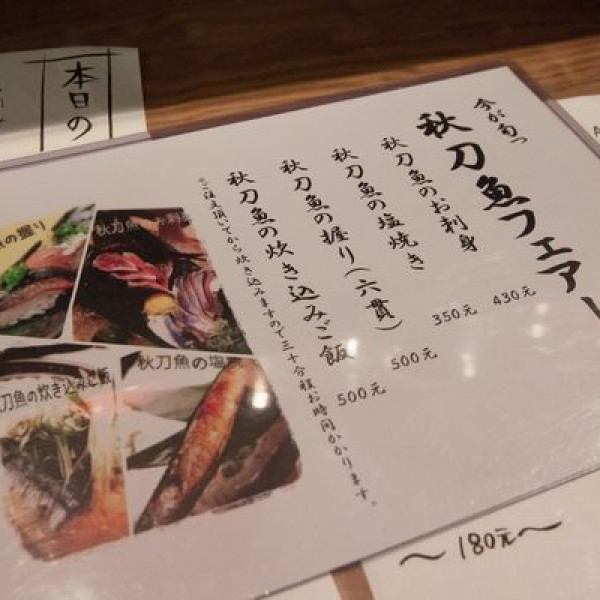 今が旬っ
秋刀魚フェアー
秋刀魚のお刺身 430元
秋刀魚の塩焼き 350元
秋刀魚の握り(六貫) 500元
秋刀魚の炊き込みご飯 500元
※ご注文頂いてから炊き込みますので三十分程お時間かかります。
の握り
秋刀魚
秋刀魚の塩
刀魚の炊き込みご飯
本日の
～180元～